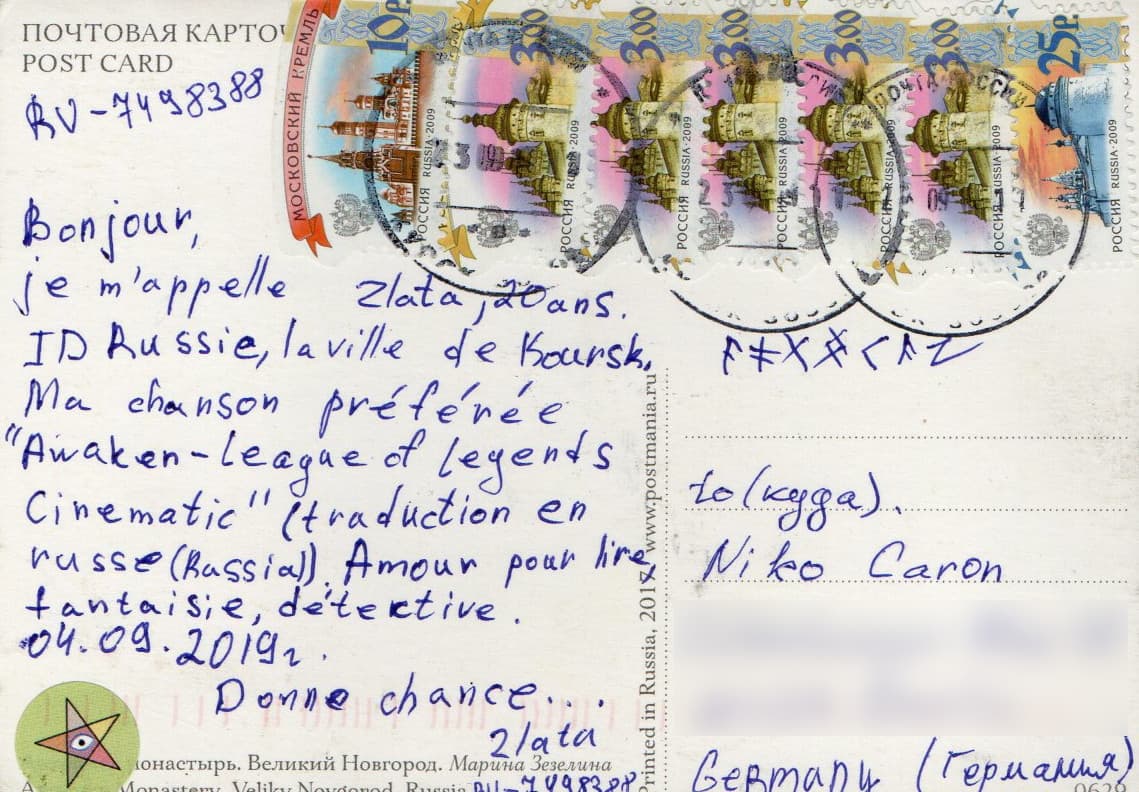 ПОЧТОВАЯ КАРТОЧ
POST CARD
RV-7498388
МОСКОВСКИЙ КРЕМЛЬ
10р.
РОССИЯ RUSSIA·2009
3.00
РОССИЯ RUSSIA·2009
3.00
РОССИЯ RUSSIA·2009
3.00
РОССИЯ RUSSIA·2009
3.00
РОССИЯ RUSSIA·2009
3.00
РОССИЯ RUSSIA·2009
25р.
РОССИЯ RUSSIA·2009
Bonjour,
je m'appelle Zlata, 20 ans.
ID Russie, la ville de Koursk.
Ma chanson préférée
"Awaken-league of legends
Cinematic" (traduction en
russe (Russia)). Amour pour lire,
fantaisie, détektive.
04.09.2019г.
Donne chance...
Zlata
RU-7498388
онастырь. Великий Новгород. Марина Зезелина
Monastery. Veliky Novgorod. Russia
Printed in Russia, 2017, www.postmania.ru
to (куда).
Niko Caron
Germany (Германия)
0629